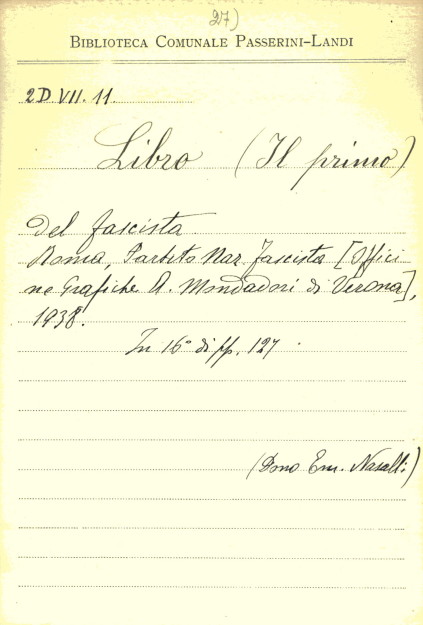 27)
BIBLIOTECA COMUNALE PASSERINI-LANDI
2D VII. 11.
Libro (Il primo)
del fascista
Roma, Partito Naz. Fascista [Offici
ne Grafiche A. Mondadori di Verona],
1938.
In 16° di pp. 127.
(Dono Em. Nasalli)